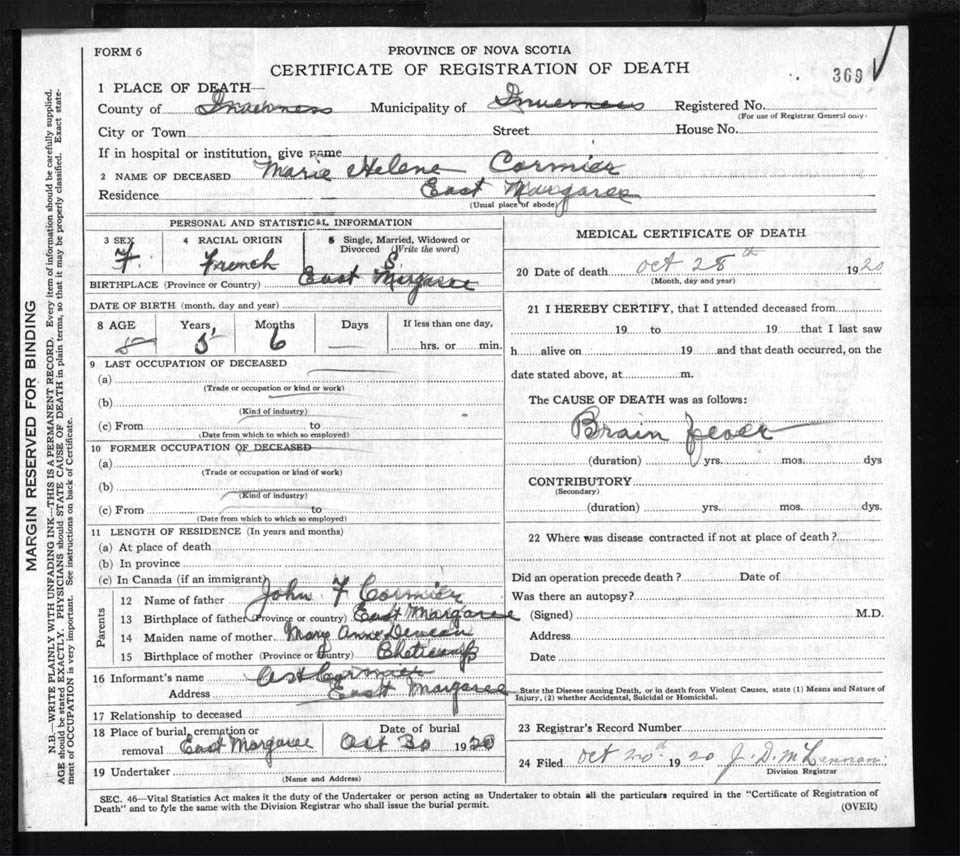 FORM 6
PROVINCE OF NOVA SCOTIA
CERTIFICATE OF REGISTRATION OF DEATH
369
1 PLACE OF DEATH—
County of Inverness Municipality of Inverness Registered No.
(For use of Registrar General only)
City or Town Street House No.
If in hospital or institution, give name
2 NAME OF DECEASED Marie Helene Cormier
Residence East Margaree
(Usual place of abode)
PERSONAL AND STATISTICAL INFORMATION
3 SEX 4 RACIAL ORIGIN 5 Single, Married, Widowed or
Divorced (Write the word)
F. French S.
BIRTHPLACE (Province or Country) East Margaree
DATE OF BIRTH (month, day and year)
8 AGE Years, Months Days If less than one day,
5 5 6 — hrs. or min.
9 LAST OCCUPATION OF DECEASED
(a)
(Trade or occupation or kind or work)
(b)
(Kind of industry)
(c) From to
(Date from which to which so employed)
10 FORMER OCCUPATION OF DECEASED
(a)
(Trade or occupation or kind of work)
(b)
(Kind of industry)
(c) From to
(Date from which to which so employed)
11 LENGTH OF RESIDENCE (In years and months)
(a) At place of death
(b) In province
(c) In Canada (if an immigrant)
Parents
12 Name of father John F Cormier
13 Birthplace of father (Province or country) East Margaree
14 Maiden name of mother Mary Anne
15 Birthplace of mother (Province or country) Cheticamp
16 Informant's name Cormier
Address East Margaree
17 Relationship to deceased
18 Place of burial, cremation or Date of burial
removal East Margaree Oct 30 1920
19 Undertaker
(Name and Address)
MEDICAL CERTIFICATE OF DEATH
20 Date of death Oct 28th 1920
(Month, day and year)
21 I HEREBY CERTIFY, that I attended deceased from
19 to 19 that I last saw
h alive on 19 and that death occurred, on the
date stated above, at m.
The CAUSE OF DEATH was as follows:
Brain fever
(duration) yrs. mos. dys
CONTRIBUTORY
(Secondary)
(duration) yrs. mos. dys.
22 Where was disease contracted if not at place of death?
Did an operation precede death? Date of
Was there an autopsy?
(Signed) M.D.
Address
Date
State the Disease causing Death, or in death from Violent Causes, state (1) Means and Nature of
Injury, (2) whether Accidental, Suicidal or Homicidal.
23 Registrar's Record Number
24 Filed Oct 20th 1920 J. D. McLennan
Division Registrar
SEC. 46—Vital Statistics Act makes it the duty of the Undertaker or person acting as Undertaker to obtain all the particulars required in the "Certificate of Registration of
Death" and to fyle the same with the Division Registrar who shall issue the burial permit.
(OVER)
MARGIN RESERVED FOR BINDING
N.B.—WRITE PLAINLY WITH UNFADING INK—THIS IS A PERMANENT RECORD. Every item of information should be carefully supplied.
AGE should be stated EXACTLY. PHYSICIANS should STATE CAUSE OF DEATH in plain terms, so that it may be properly classified. Exact state-
ment of OCCUPATION is very important. See instructions on back of Certificate.